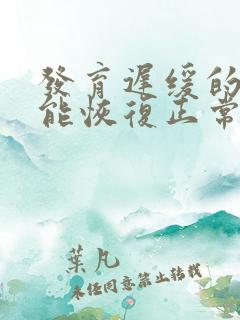 發育遲緩的
能恢復正常
葉凡
未经同意禁止转载